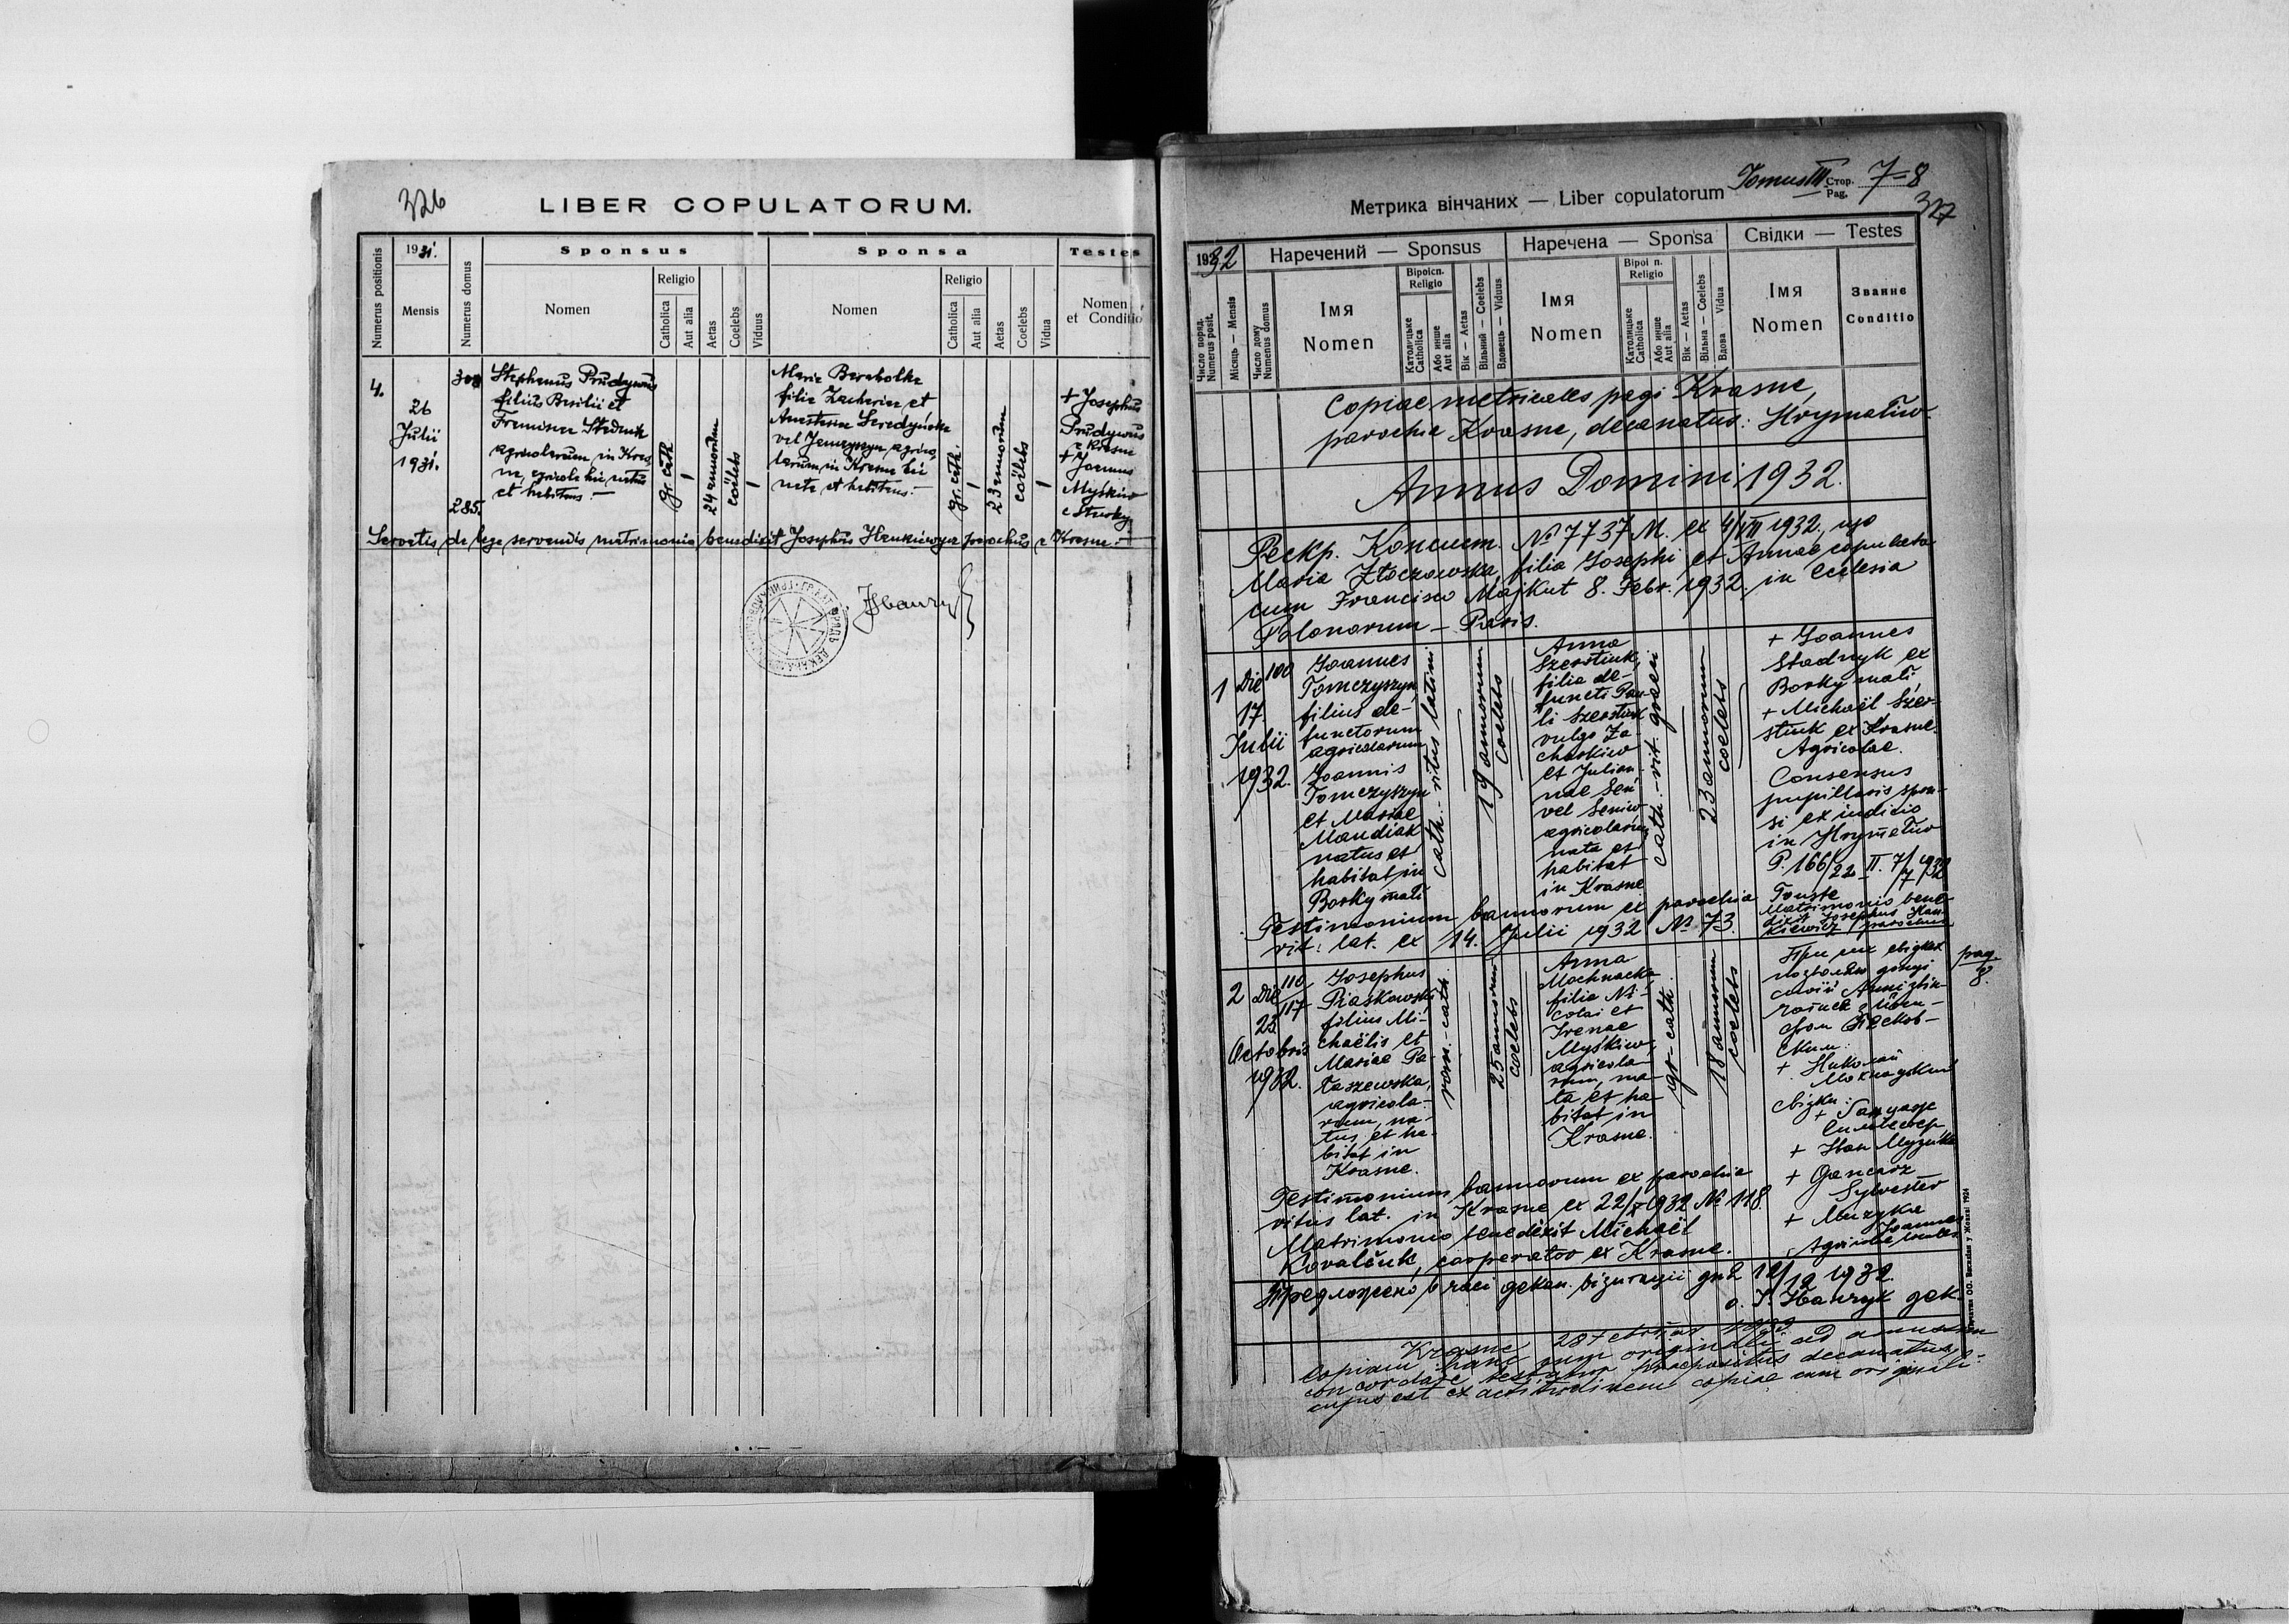 326
LIBER COPULATORUM.
Numerus positionis
1931.
Mensis
Numerus domus
Sponsus
Nomen
Religio
Catholica
Aut alia
Aetas
Coelebs
Viduus
Sponsa
Nomen
Religio
Catholica
Aut alia
Aetas
Coelebs
Vidua
Testes
Nomen
et Conditio
4.
26
Julii
1931.
285.
Stephanus Prudywus
filius Basilii et
agricolarum in Kras-
ne, agricola hic natus
et habitans.—
gr. cath.
24 annorum
coelebs
filia Zachariae et
vel Janczyszyn, agrico-
larum in Krasne hic
nata et habitans.—
gr. cath.
23 annorum
coelebs
+ Josephus
Prudywus
e Krasne
+ Joannes
Myśkiw
Servatis de lege servandis matrimonio benedixit Josephus parochus e Krasne.—
327
Метрика вінчаних — Liber copulatorum Tomus III Стор. Pag. 7=8
1932
Число поряд.
Numerus posit.
Місяць — Mensis
Число дому
Numerus domus
Наречений — Sponsus
Імя
Nomen
Віроісп.
Religio
Католицьке
Catholica
Або инше
Aut alia
Вік — Aetas
Вільний — Coelebs
Вдовець — Viduus
Наречена — Sponsa
Імя
Nomen
Religio
Католицьке
Catholica
Або инше
Aut alia
Вік — Aetas
Вільна — Coelebs
Вдова Vidua
Свідки — Testes
Імя
Nomen
Званнє
Conditio
Copiae metricales pagi Krasne,
parochia Krasne, decanatus: Hrymaliw.
Annus Domini 1932.
Рескр. Консист. № 7737 M. ex 4/VII 1932, що
Maria Złoczowska, filia Josephi et Annae copulata
cum Francisco Majkut 8. Febr. 1932. in ecclesia
Polonorum — Paris.
1
Die
17.
Julii
1932.
100
Joannes
Tomczyszyn
filius de-
functorum
agricolarum
Joannis
Tomczyszyn
et Mariae
Mandiak
natus et
habitat in
Borky mali
cath.-ritus latini
19 annorum
coelebs
Anna
Szerstiuk,
filia de-
functi Pau-
li Szerstiuk
vulgo Za-
charkiw
et Julian-
nae Sen
vel Seniw
agricolarum
nata et
habitat
in Krasne
cath.-rit. graeci
23 annorum
coelebs
+ Joannes
Stadnyk ex
Borky mali,
+ Michaël Szer-
stiuk ex Krasne.
Agricolae.
Consensus
pupillaris spon-
si ex iudicio
in Hrymaliw
P. 166/22 II. 7/7 1932
Testimonium bannorum ex parochia Touste
rit. lat. ex 14. Julii 1932 № 73.
Matrimonio bene-
dixit Josephus Han-
kiewicz parochus
2
Die
23
Octobris
1932.
110
117
Josephus
Piaskowski
filius Mi-
chaëlis et
Mariae Pa-
taszewska,
agricola-
rum, na-
tus et ha-
bitat in
Krasne.
rom.-cath.
25 annorum
coelebs
Anna
Mochnacka
filia Ni-
colai et
Irenae
Myśkiw,
agricola-
rum, na-
ta et ha-
bitat in
Krasne.
gr-cath.
18 annorum
coelebs
pag.
8.
При них свідках
позволяю доньці
своїй Анні
+ Николай
Мохнацкий
свідки:
+ Иван Музика
+ Gancarz
Sylvester
+ Muzyka
Joannes
Testimonium bannorum ex parochia
ritus lat. in Krasne ex 22/X 1932 № 118.
Matrimonio benedixit Michaël
Kovalčuk, cooperator ex Krasne.
Предложено в часі декан. візитації дня 12/12 1932.
Krasne
Copiam hanc cum originali ad amussim
concordare testatur praepositus decanatus,
cujus est
copiae cum originali.